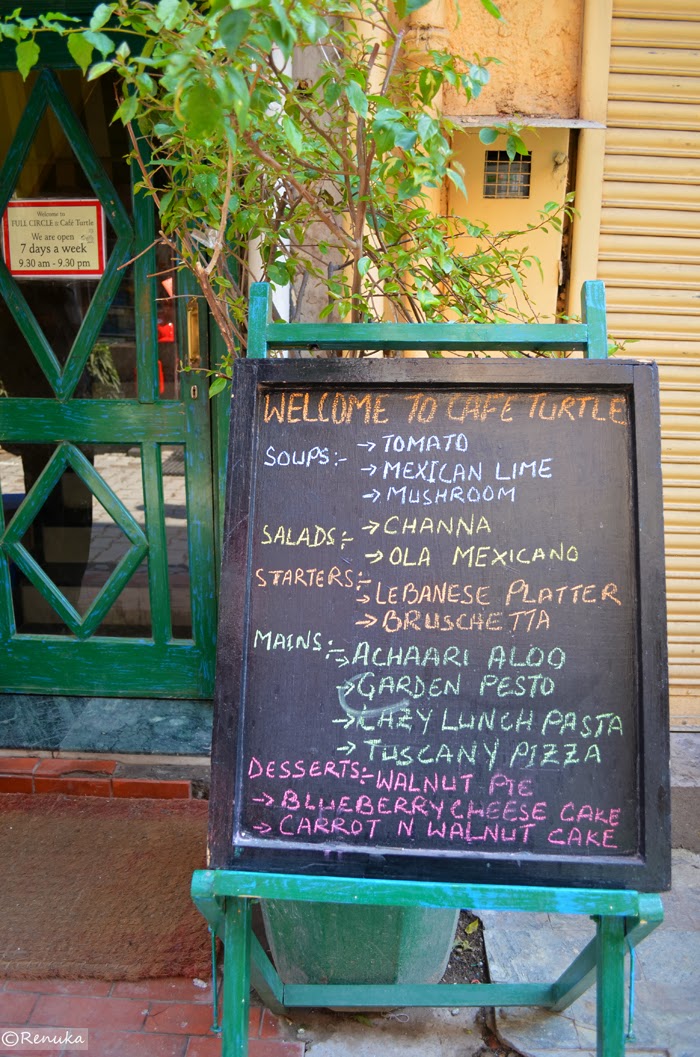 Welcome to
FULL CIRCLE n Café Turtle
We are open
7 days a week
9.30 am - 9.30 pm
WELCOME TO CAFE TURTLE
SOUPS:- → TOMATO
→ MEXICAN LIME
→ MUSHROOM
SALADS:- → CHANNA
→ OLA MEXICANO
STARTERS:- → LEBANESE PLATTER
→ BRUSCHETTA
MAINS:- → ACHAARI ALOO
→ GARDEN PESTO
→ LAZY LUNCH PASTA
→ TUSCANY PIZZA
DESSERTS:- WALNUT PIE
→ BLUEBERRY CHEESE CAKE
→ CARROT N WALNUT CAKE
©Renuka